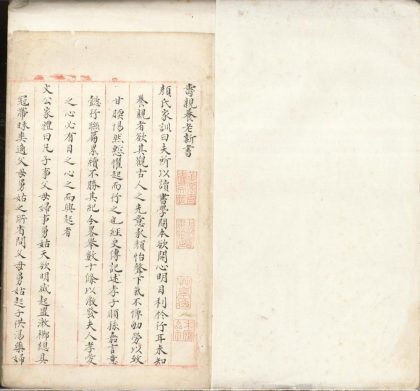 壽親養老新書
顔氏家訓曰夫所以讀書學問本欲開心明目利於行耳未知
養親者欲其觀古人之先意承顔怡聲下氣不憚劬勞以致
甘腝惕然慙懼起而行之也經史傳記述孝子順孫嘉言業
懿行聯篇累牘不勝其紀今畧舉數十條以激發夫人孝愛
之心必有目之心之而興起者
文公家禮曰凡子事父母婦事舅姑天欲明咸起盥漱櫛總具
冠帶昧爽適父母舅姑之所省問父母舅姑起子供湯藥婦